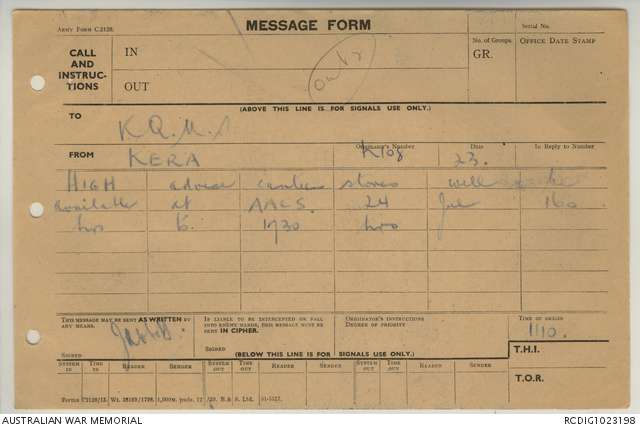 Army Form C.2128.
MESSAGE FORM
Serial No.
CALL AND INSTRUC-TIONS
IN
OUT
No. of Groups.
GR.
Office Date Stamp
(ABOVE THIS LINE IS FOR SIGNALS USE ONLY.)
TO K.Q.M.S
FROM KERA
Originator's Number K108
Date 23.
In Reply to Number
HIGH advise canteen stores will be
available at AACS. 24 Jul 160
hrs to 1730 hrs
THIS MESSAGE MAY BE SENT AS WRITTEN BY ANY MEANS.
SIGNED
IS LIABLE TO BE INTERCEPTED OR FALL INTO ENEMY HANDS, THIS MESSAGE MUST BE SENT IN CIPHER.
SIGNED
ORIGINATOR'S INSTRUCTIONS
DEGREE OF PRIORITY
TIME OF ORIGIN
1110.
(BELOW THIS LINE IS FOR SIGNALS USE ONLY.)
T.H.I.
T.O.R.
SYSTEM IN TIME IN READER SENDER SYSTEM OUT TIME OUT READER SENDER SYSTEM OUT TIME OUT READER SENDER
AUSTRALIAN WAR MEMORIAL
RCDIG1023198